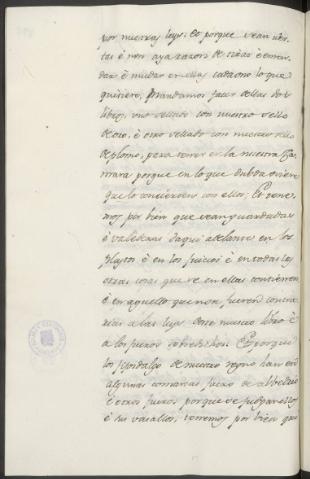 por nuestras leys. Et porque sean cier-
tas é non aya razon de tirar é emen-
dar é mudar en ellas cada uno lo que
quisiere, Mandamos facer dellas dos
libros, uno sellado con nuestro sello
de oro, é otro sellado con nuestro sello
de plomo, para tener en la nuestra Ca-
mara porque en lo que dubda oviere
que lo concierden con ellos; Et tene-
mos por bien que sean guardadas
é valederas daqui adelante en los
Pleytos é en los juicios é en todas las
otras cosas que se en ellas contienen
é en aquello que non fueren contra-
rias a las leys deste nuestro libro é
a los fueros sobredichos. Et porque
los fijosdalgo de nuestro regno han en
algunas comarcas fuero de albedrio
é otros fueros porque se judgan ellos
é sus vasallos, tenemos por bien que